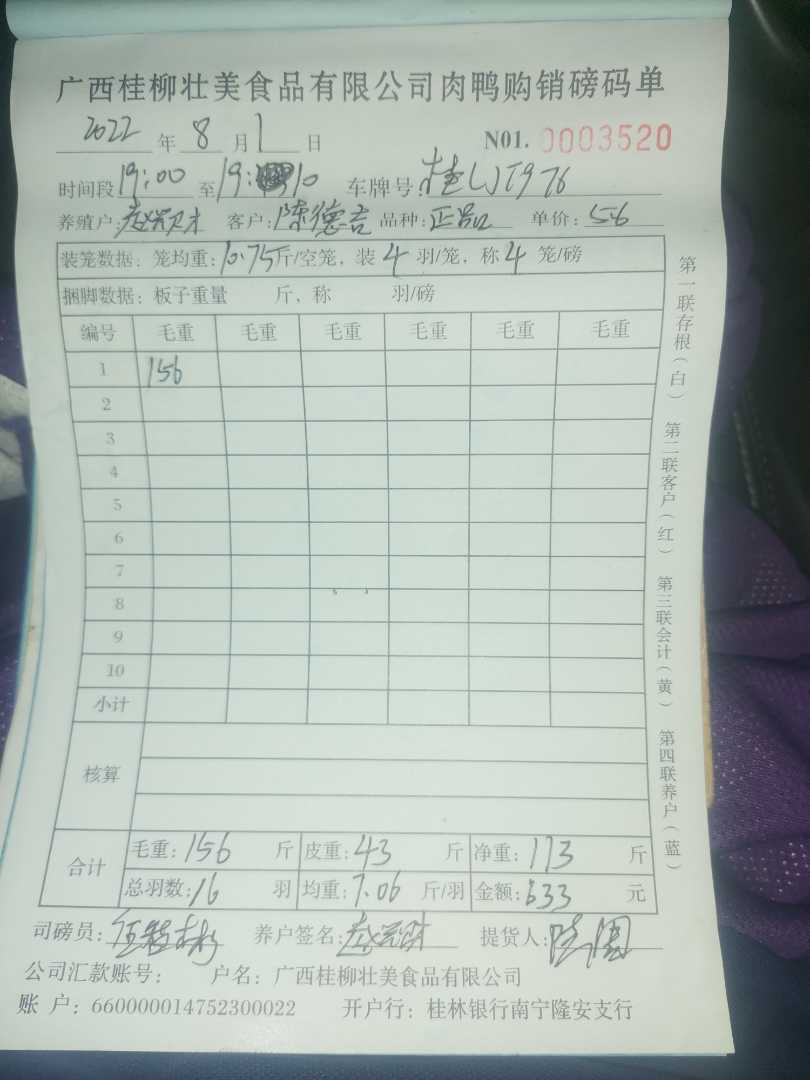 广西桂柳壮美食品有限公司肉鸭购销磅码单
2022 年 8 月 1 日 N01. 0003520
时间段 19:00 至 19: 10 车牌号: 桂
养殖户: 客户: 陈德吉 品种: 正品 单价: 5.6
装笼数据: 笼均重: 10.75 斤/空笼, 装 4 羽/笼, 称 4 笼/磅
捆脚数据: 板子重量 斤, 称 羽/磅
编号 毛重 毛重 毛重 毛重 毛重 毛重
1 156
2
3
4
5
6
7
8
9
10
小计
核算
合计 毛重: 156 斤 皮重: 43 斤 净重: 113 斤
总羽数: 16 羽 均重: 7.06 斤/羽 金额: 633 元
司磅员: 养户签名: 提货人:
公司汇款账号: 户名: 广西桂柳壮美食品有限公司
账 户: 660000014752300022 开户行: 桂林银行南宁隆安支行
第一联存根(白) 第二联客户(红) 第三联会计(黄) 第四联养户(蓝)